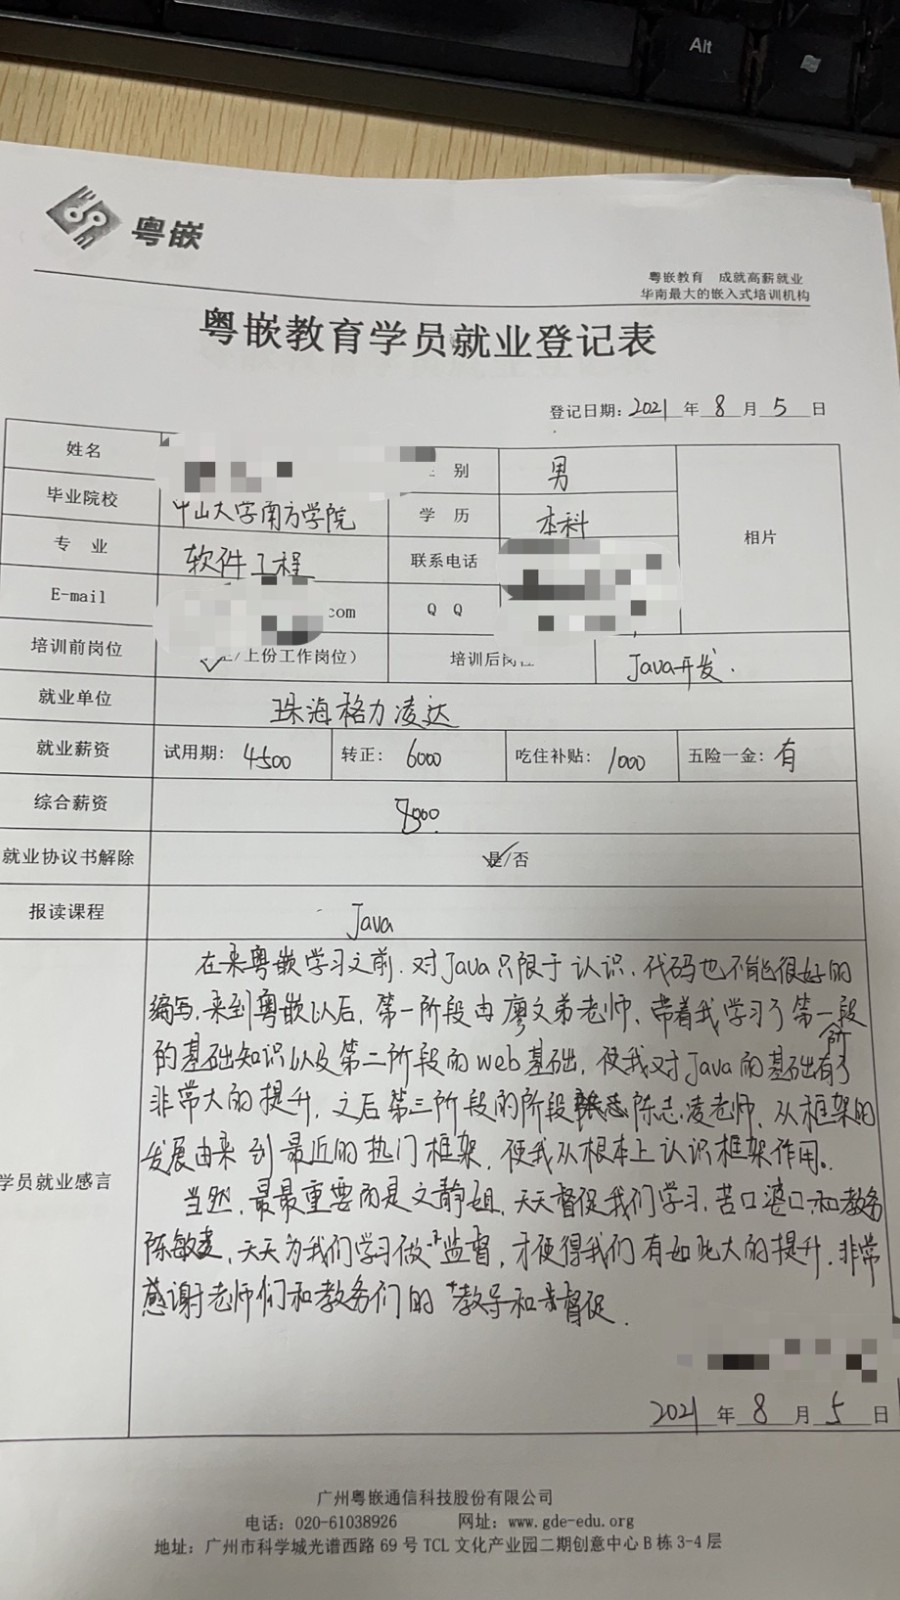 Alt
粤嵌
粤嵌教育 成就高薪就业
华南最大的嵌入式培训机构
粤嵌教育学员就业登记表
登记日期: 2021 年 8 月 5 日
姓名 别 男
毕业院校 中山大学南方学院 学 历 本科 相片
专 业 软件工程 联系电话
E-mail com Q Q
培训前岗位 /上份工作岗位) 培训后岗位 Java开发.
就业单位 珠海格力凌达
就业薪资 试用期: 4500 转正: 6000 吃住补贴: 1000 五险一金: 有
综合薪资 000
就业协议书解除 是/否
报读课程 Java
学员就业感言
在来粤嵌学习之前.对Java只限于认识.代码也不能很好的
编写.来到粤嵌以后,第一阶段由廖文弟老师,带着我学习了第一阶段
的基础知识以及第二阶段的web基础,使我对Java的基础有了
非常大的提升,之后第三阶段的阶段陈志凌老师,从框架的
发展由来到最近的热门框架,使我从根本上认识框架作用。
当然,最最重要的是文静姐,天天督促我们学习,苦口婆口和教务
陈敏,天天为我们学习做监督,才使得我们有如此大的提升.非常
感谢老师们和教务们的教导和督促.
2021 年 8 月 5 日
广州粤嵌通信科技股份有限公司
电话: 020-61038926 网址: www.gde-edu.org
地址: 广州市科学城光谱西路 69 号 TCL 文化产业园二期创意中心 B 栋 3-4 层